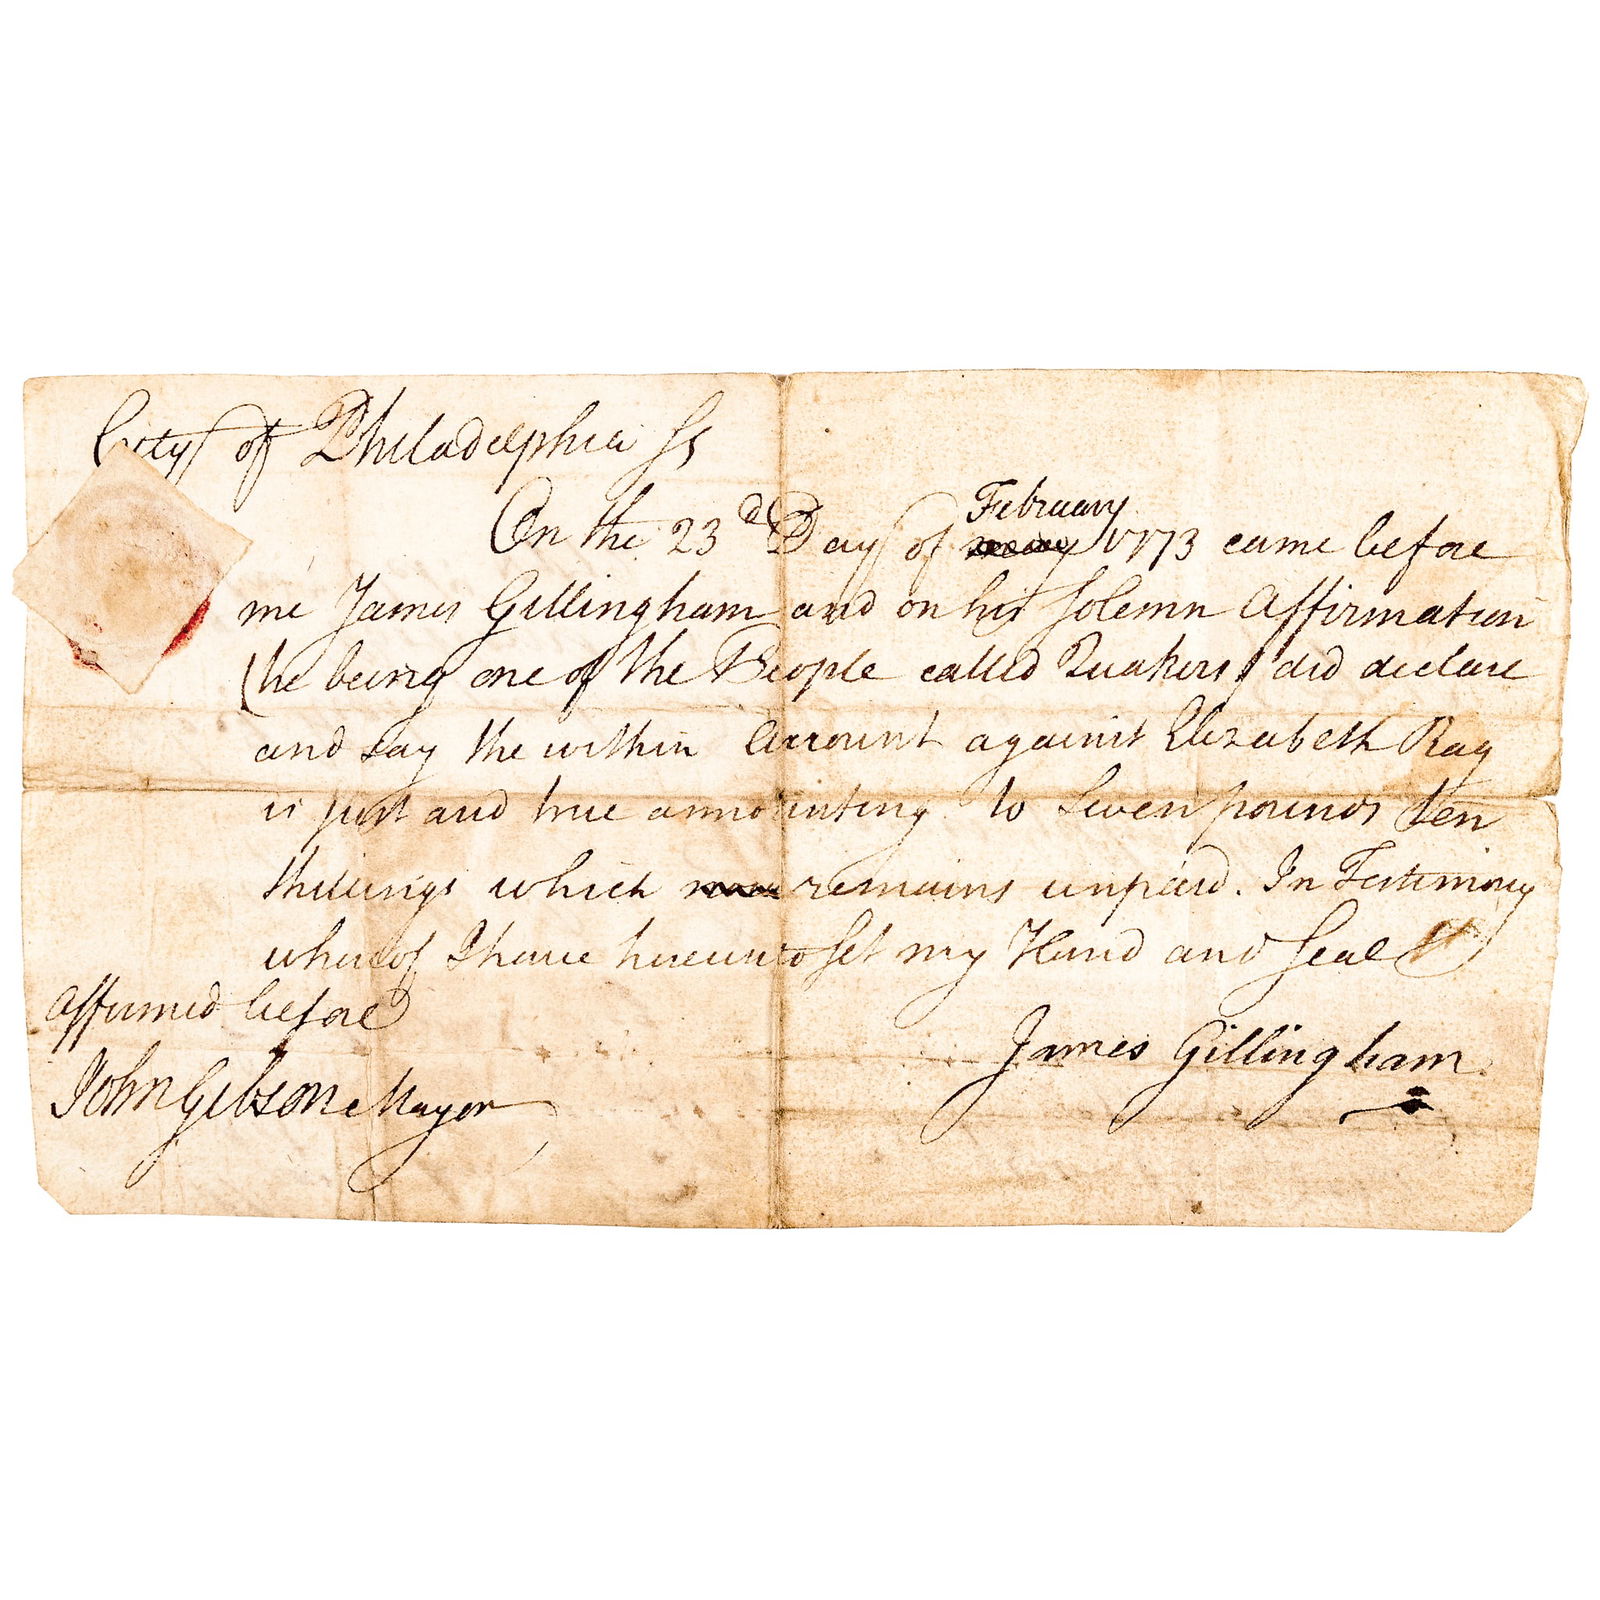 City of Philadelphia Ss
On the 23d Day of February 1773 came before
me James Gillingham and on his Solemn Affirmation
(he being one of the People called Quakers) did declare
and say the within Account against Elizabeth Rag
is just and true amounting to Seven pounds ten
shillings which remains unpaid. In Testimony
whereof I have hereunto set my Hand and Seal
Affirmed before
James Gillingham
John Gibson Mayor